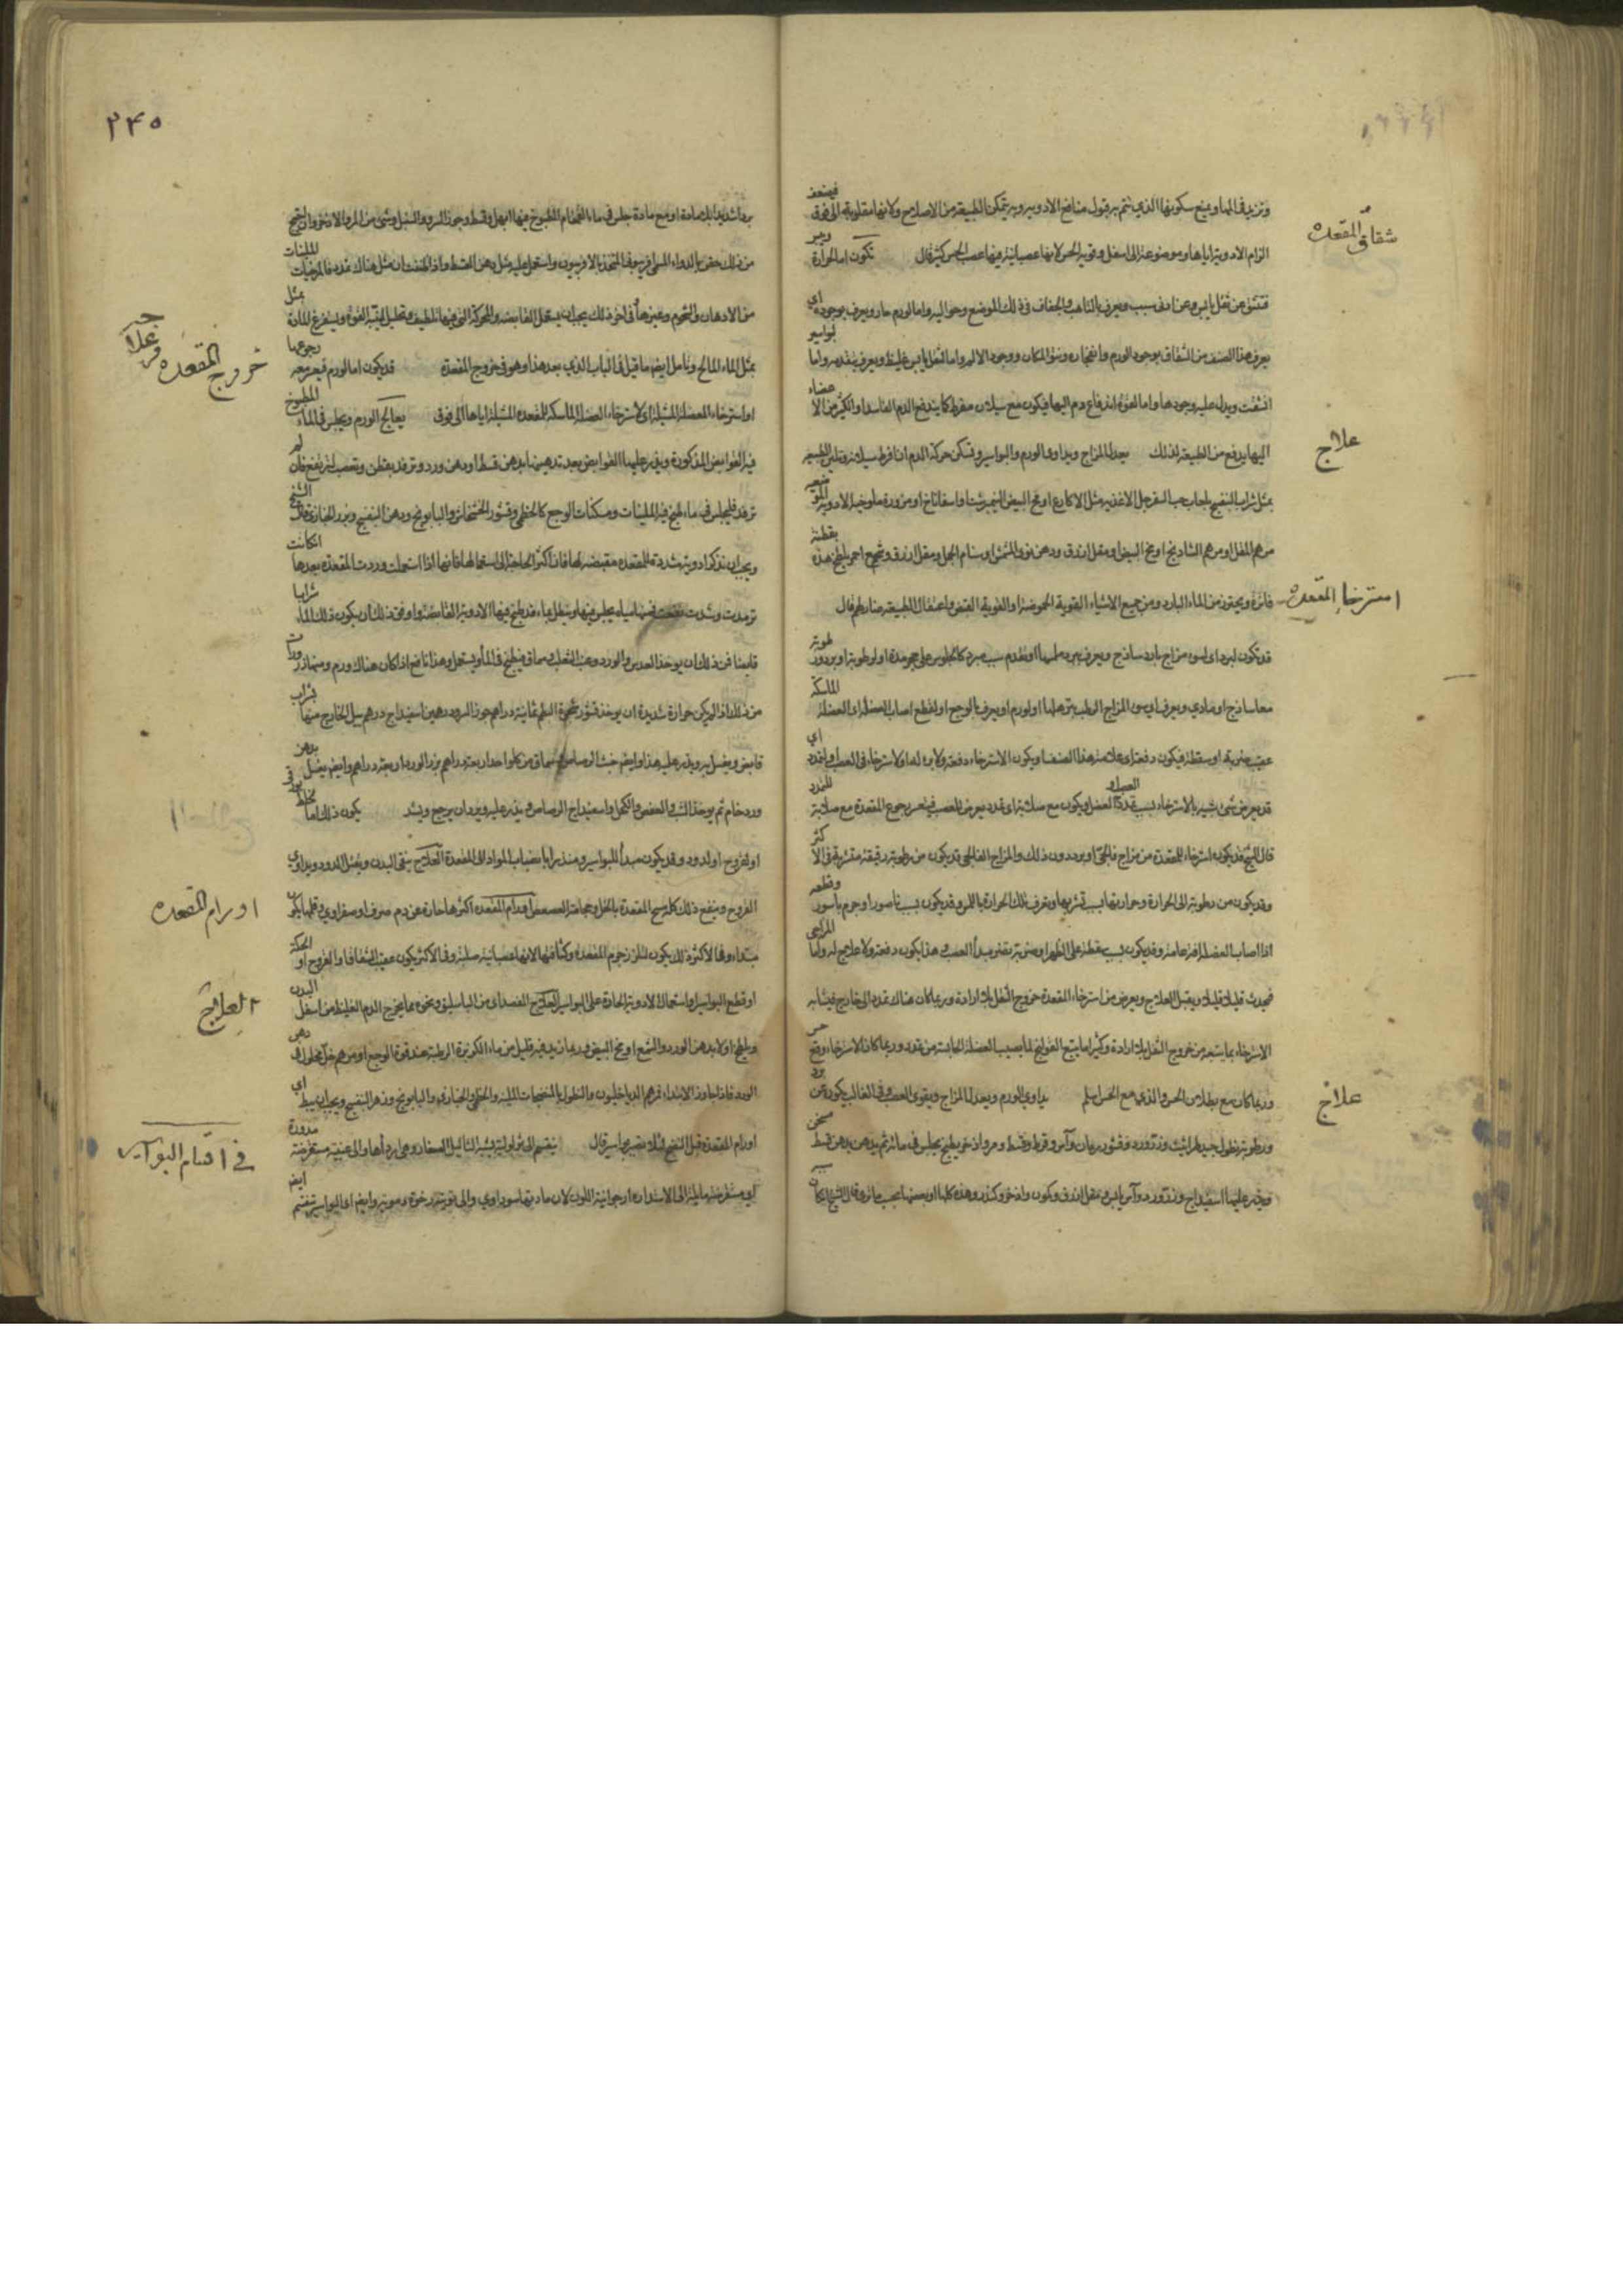 شقاق المقعده
وتزيد في الماء ويمنع سكونها الذي يتم به قبول منافع الادوية وبه يتمكن الطبيعة من الاصلاح ولانها مقلوبة الى فوق فيصعب
الزام الادوية اياها وموضوعة الى اسفل وقوية الحس لانها عصبانية فيها عصب الحس كثير قال تكون اما لحرارة
فتشق عن ثفل يابس وعن ادنى سبب ويعرف بالتلهب والجفاف في ذلك الموضع وحواليه واما لورم حار ويعرف بوجوده اي
يعرف هذا الصنف من الشقاق بوجود الورم وانتفاخ المكان ووجود الالم واما لثفل يابس غليظ ويعرف بتقدمه واما لبواسير
انشقت ويدل عليه وجودها واما لقوة اندفاع دم اليها فيكون مع سيلان مفرط كما يندفع الدم الفاسد او الكثير من الاعضاء
علاج
اليها بدفع من الطبيعة لذلك يعدل المزاج ويداوى الورم والبواسير وتسكن حركة الدم ان افرط سيلانه وتلين الطبيعة
بمثل شراب البنفسج بلعاب حب السفرجل الاغذية مثل الاكارع او مح البيض النيمبرشت واسفاناخ او مزورة ملوخيا الادوية
مرهم المقل او مرهم الشادنج او مح البيض ومقل ازرق ودهن نوى المشمش او سنام الجمل ومقل ازرق وشمع احمر يلطخ هذه بقطنة
استرخاء المقعده
فاترة ويحترز من الماء البارد ومن جميع الاشياء القوية الحموضة او القوية القبض واعتقال الطبيعة ضار لهم قال
قد تكون لبرد اي لسوء مزاج بارد ساذج ويعرف ببرد ملمسها او بتقدم سبب مبرد كالجلوس على حجر مدة او لرطوبة او برد ورطوبة
معا ساذج او مادي ويعرف اي سوء المزاج الرطب بترهلها او لورم او يعرف بالوجع او لقطع اصاب العضلة اي العضلة الماسكة
عقيب ضربة او سقطة فيكون دفعة اي علامة هذا الصنف ان يكون الاسترخاء دفعة ولا برء له او لاسترخاء في العصب او لتمدد اي
قد يعرض شيء شبيه بالاسترخاء بسبب تمدد العصب او العضل ويكون مع صلابة اي تمدد يعرض للعصب فيتعسر رجوع المقعدة مع صلابة للتمدد
قال الشيخ قد يكون استرخاء المقعدة من مزاج فالجي او برد دون ذلك والمزاج الفالجي قد يكون من رطوبة رقيقة متشربة في الاكثر
وقد يكون من رطوبة الى الحرارة وحرارتها بسبب تشربها ويعرف تلك الحرارة باللمس وقد يكون بسبب ناصور او جرم باسور وقطعه
اذا اصاب العضلة افة عامة وقد يكون بسبب سقطة على الظهر او ضربة تضر مبدأ العصب وهذا يكون دفعة ولا علاج له واما المزاجي
فيحدث قليلا قليلا ويقبل العلاج ويعرض من استرخاء المقعدة خروج الثفل بلا ارادة وربما كان هناك تمدد الى خارج فيشابه
الاسترخاء بما يتبعه من خروج الثفل بلا ارادة وكثيرا ما يتبع القولنج لما يصيب العضلة الحابسة من تمدد وربما كان الاسترخاء مع
علاج
وربما كان مع بطلان الحس والذي مع الحس اسلم يداوى الورم ويعدل المزاج ويقوى العصب وفي الغالب يكون عن برد
ورطوبة نطول جيد طراثيث وورد وقشور رمان وآس وقرظ وقسط ومر واذخر يطبخ يجلس في مائه ثم يدهن بدهن قسط مسخن
ويذر عليها اسفيداج ورد وآس يابس ومقل ازرق وكمون واذخر وكندر وهذه كلها او بعضها بحسب ما ترى قال الشيخ ان كان
٢٤٥
بردا شديدا بلا مادة او مع مادة جلس في ماء القمقام المطبوخ فيها ابهل وقسط وجوز السرو والسنبل وشيء من المر والاذخر وان احتيج
من ذلك حقن بالدواء المسمى افربيون المتخذ بالافربيون واستعمل عليه مثل دهن القسط واذا ظننت ان مثل هناك تمدد فالمرخيات الملينات
من الادهان والشحوم وغيرها وفي اخر ذلك يجب ان يستعمل القابضة والمحركة التي فيها تلطيف وتحليل لتنبه القوة ويستفرغ المادة بمثل
خروج المقعده وعلاجه
بمثل الماء المالح وتأمل ايضا ما قيل في الباب الذي بعد هذا وهو في خروج المقعدة قد يكون اما لورم فيعسر معه رجوعها
او استرخاء العضلة المشيلة اي لاسترخاء العضلة الماسكة للمقعدة المشيلة اياها الى فوق يعالج الورم ويجلس في الماء المطبوخ
فيه القوابض المذكورة ويذر عليها القوابض بعد تدهينها بدهن قسط او دهن ورد وترفد بقطن وتعصب لترتفع فان لم
ترفد فليجلس في ماء طبخ فيه الملينات ومسكنات الوجع كالخطمي وقشور الخشخاش والبابونج ودهن البنفسج وبزر الخبازى قال الشيخ
ويجب ان نذكر ادوية مشددة للمقعدة مقبضة لها فان اكثر الحاجة الى استعمالها فانها اذا استعملت وردت المقعدة بعدها ان كانت
ترمدت وشدت فمنها مياه يجلس فيها وينطل بماء قد طبخ فيها الادوية القابضة واوفق ذلك ان يكون ذلك الماء شرابا
قابضا فمن ذلك ان يوخذ العدس والورد وعنب الثعلب وسماق فيطبخ في الماء ويستعمل وهذا نافع اذا كان هناك ورم ومنها ذرورات
من ذلك اذا لم يكن حرارة شديدة ان يوخذ قشور شجرة البطم ثمانية دراهم جوز السرو درهمين اسفيداج درهم يبل الخارج منها بشراب
قابض ويغسل به ويذر عليه هذا وايضا خبث الرصاص سماق من كل واحد اربعة دراهم بزر الورد اربعة دراهم وايضا يغسل بدهن
ورد خام ثم يوخذ الشب والعفص والكحل واسفيداج الرصاص ويذر عليه ويرد ان يرجع ويشد يكون ذلك اما لخلط بورقي
او لقروح او لدود وقد يكون مبدأ للبواسير ومنذرا بانصباب المواد الى المقعدة العلاج ينقى البدن ويقتل الدود ويداوى
اورام المقعده
القروح وينفع ذلك كله مسح المقعدة بالخل وحجامة العصعص اورام المقعدة اكثرها حارة عن دم صرف او صفراوي وقلما يكون
مبتداء وفي الاكثر ذلك يكون لتلزز جرم المقعدة وكثافتها لانها عصبانية صلبة وفي الاكثر يكون عقيب الشقاق او القروح او الحكة
العلاج
او قطع البواسير او استعمال الادوية الحادة على البواسير العلاج الفصد اي من الباسليق ونحوه مما يخرج الدم الغليظ من اسفل البدن
ويلطخ اولا بدهن الورد والشمع او مح البيض وربما زيد فيه قليل من ماء الكزبرة الرطبة عند قوة الوجع او مرهم خل محلول في دهن
الورد فاذا جاوز الابتداء فمرهم الدياخيلون والنطول بالمنضجات الملينة والخطمي والخبازى والبابونج وزهر البنفسج ويجب ان يبط اي
في اقسام البواسير
اورام المقعدة قبل النضج لئلا يصير نواسير قال ينقسم الى ثؤلولية يشبه الثآليل الصغار وهي اردأها والى عنبية مستعرضة مدورة
اي مستعرضة مايلة الى الاستدارة ارجوانية اللون لان مادتها سوداوي والى توتية رخوة دموية وايضا اي البواسير تنقسم ايضا